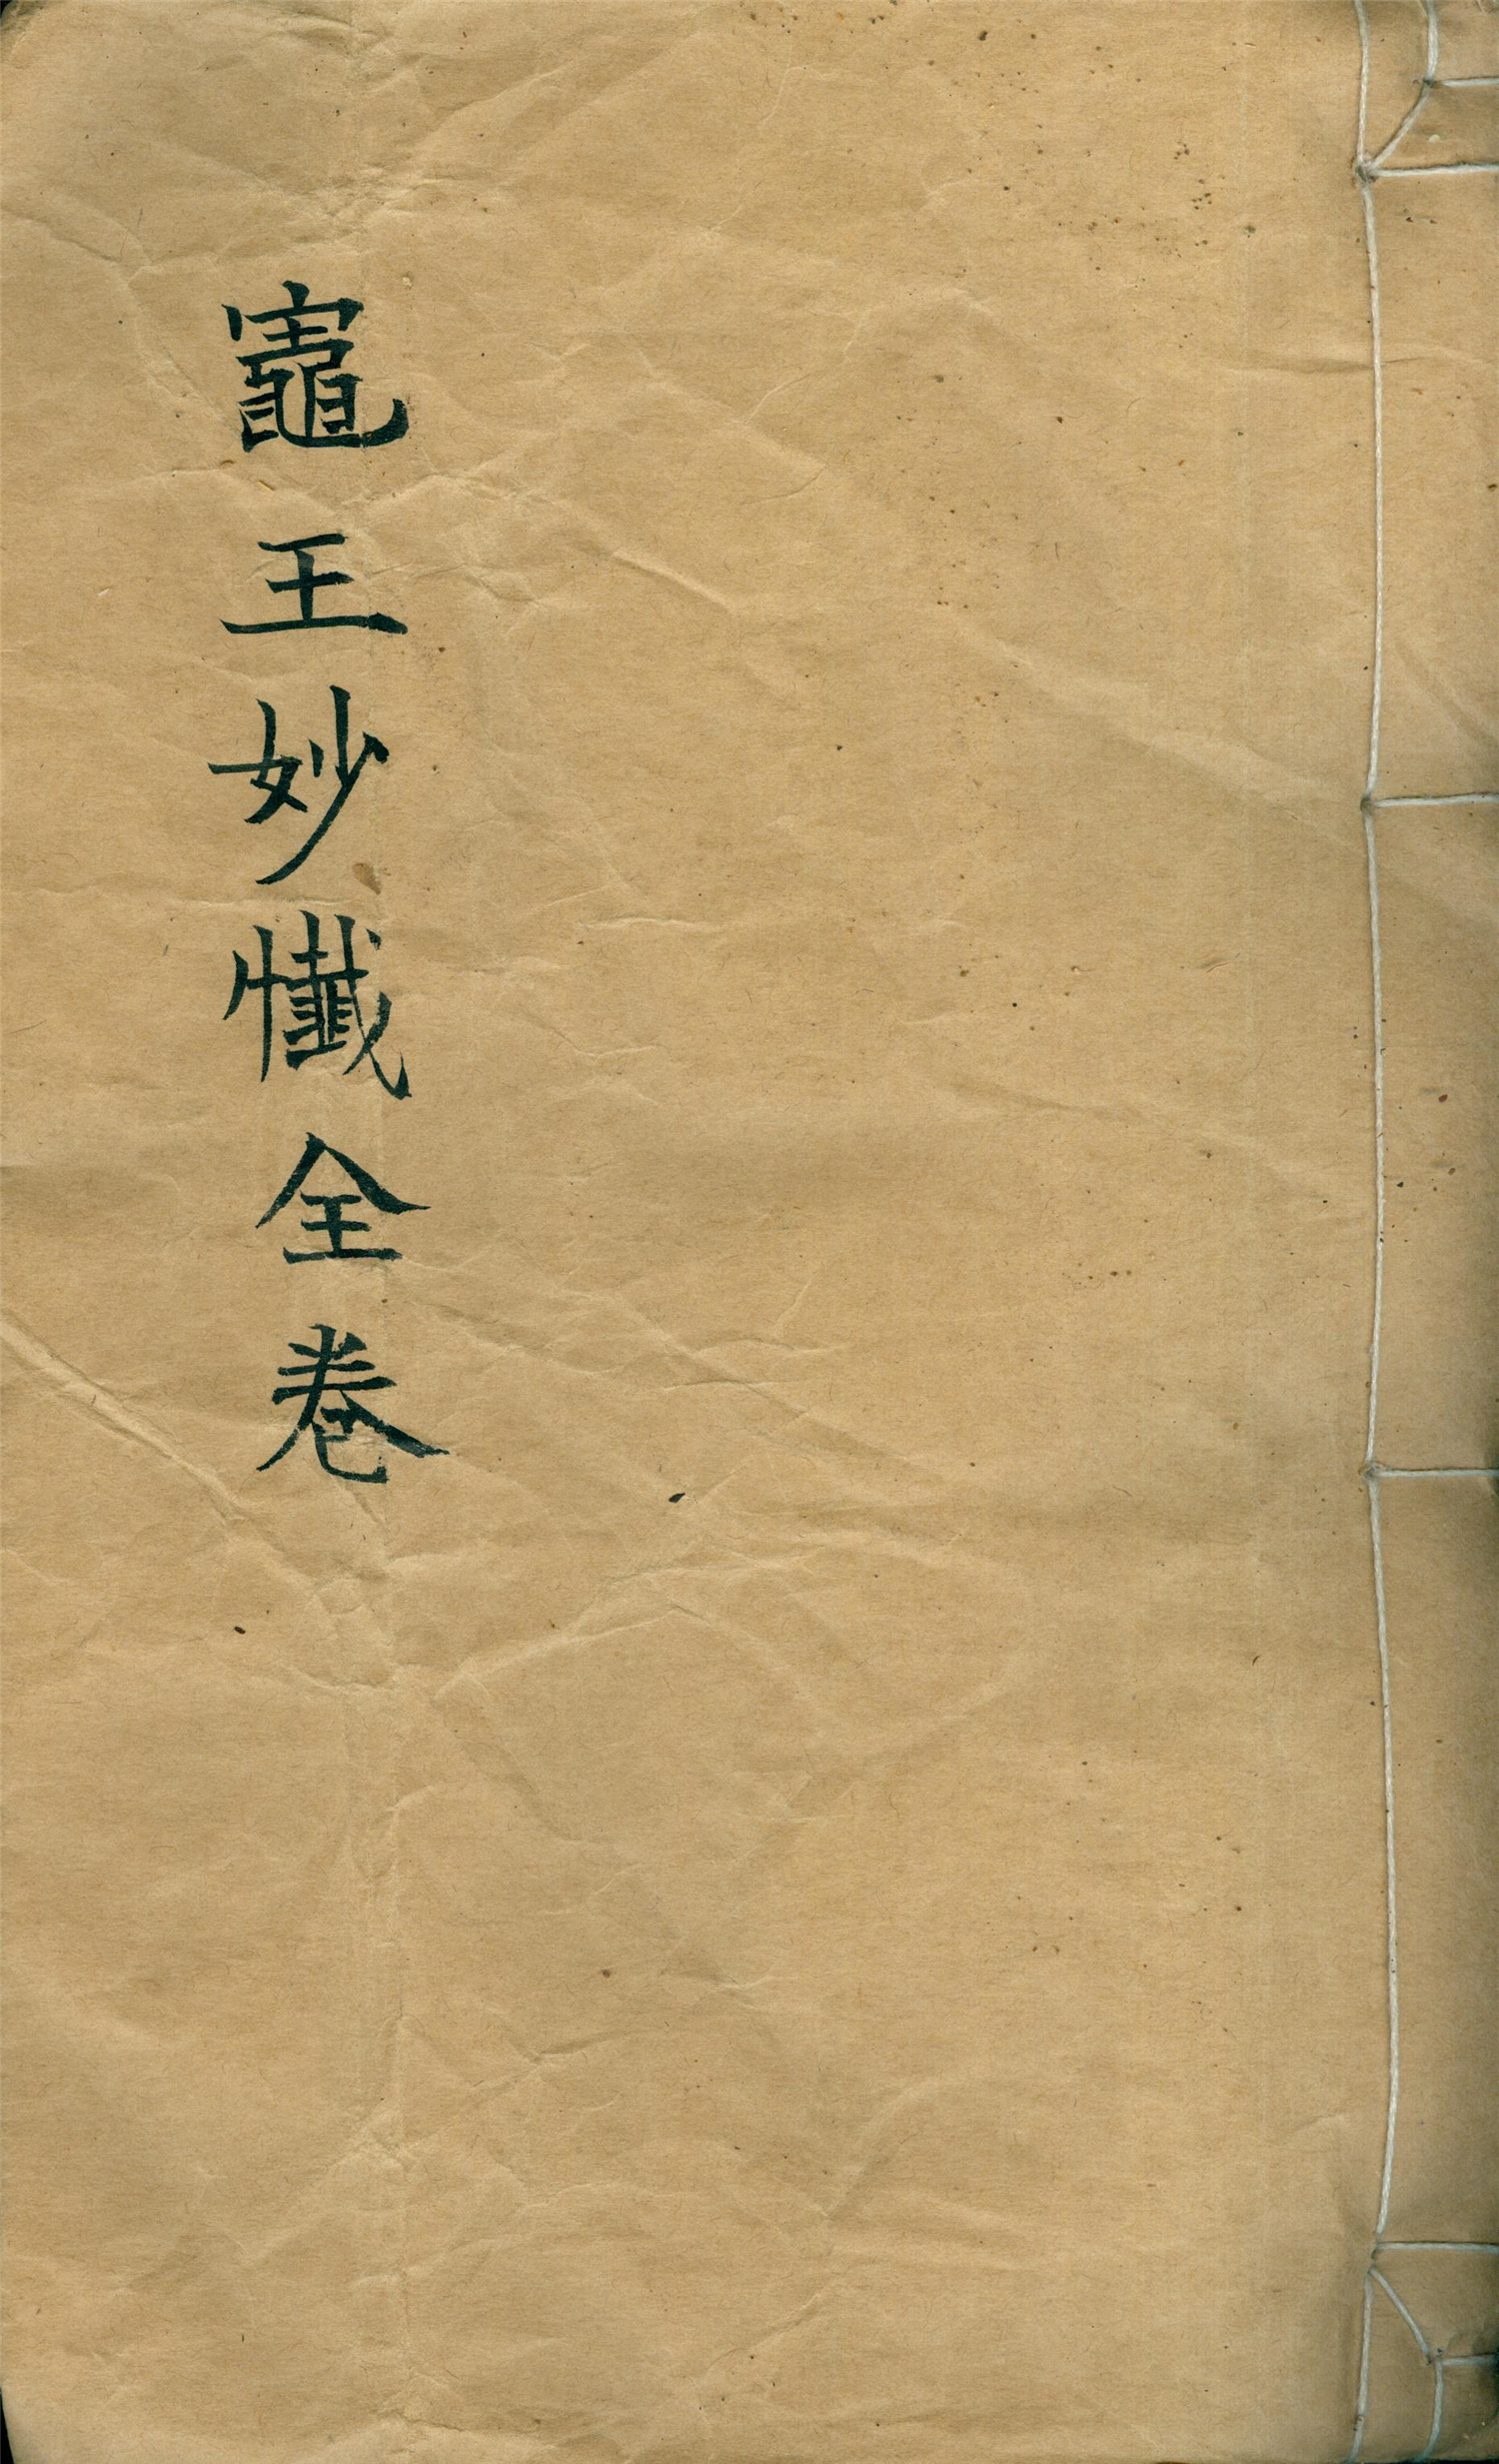 竈王妙懺全卷